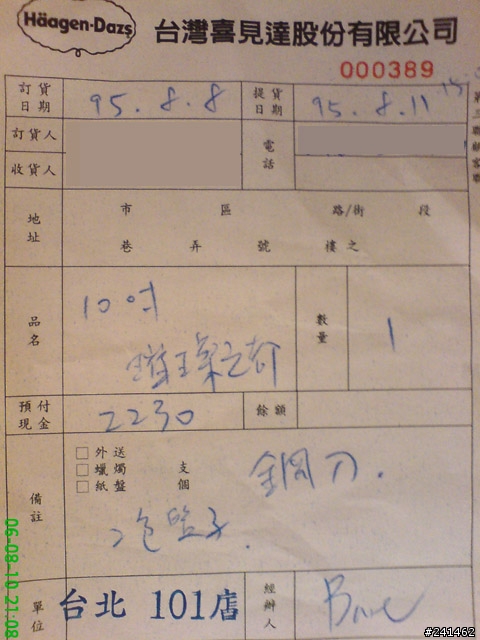 Häagen-Dazs
台灣喜見達股份有限公司
000389
訂貨日期 95.8.8 提貨日期 95.8.11
訂貨人 電話
收貨人
地址 市 區 路/街 段
巷 弄 號 樓之
品名 10吋 數量 1
璀璨之都
預付現金 2230 餘額
備註 □外送
□蠟燭 支
□紙盤 個
鋼刀.
2包盤子.
單位 台北 101店 經辦人
06-08-10 21:08
#241462